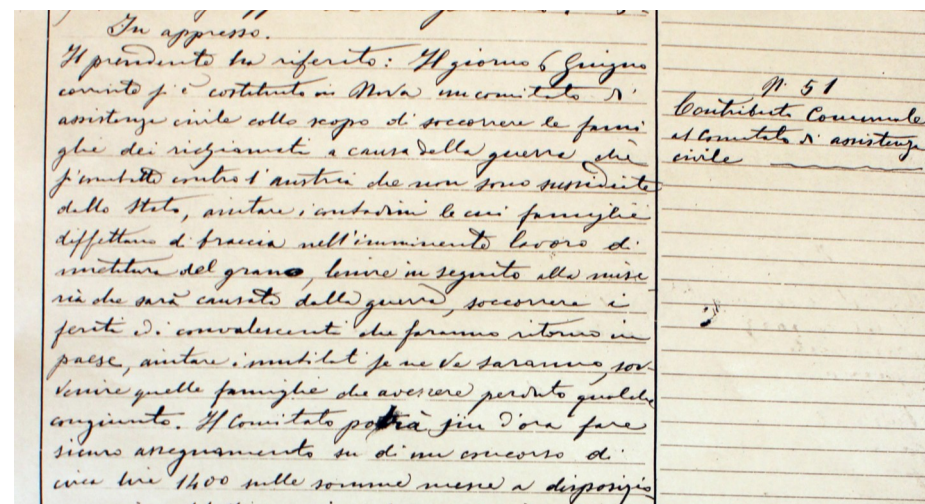 In appresso.
Il presidente ha riferito: Il giorno 6 Giugno
corrente s'è costituito in Nova un comitato di
assistenza civile collo scopo di soccorrere le fami
glie dei richiamati a causa della guerra che
si combatte contro l'austria che non sono sussidiate
dallo Stato, aiutare i contadini le cui famiglie
diffettano di braccia nell'imminente lavoro di
mietitura del grano, lenire in seguito alla mise
ria che sarà causata dalla guerra, soccorrere i
feriti ed i convalescenti che faranno ritorno in
paese, aiutare i mutilati se ne ve saranno, sov-
venire quelle famiglie che avessere perduto qualche
congiunto. Il Comitato potrà fin d'ora fare
sicuro assegnamento su di un concorso di
circa lire 1400 sulle somme messe a disposizio
N. 51
Contributo Comunale
al Comitato di assistenza
civile